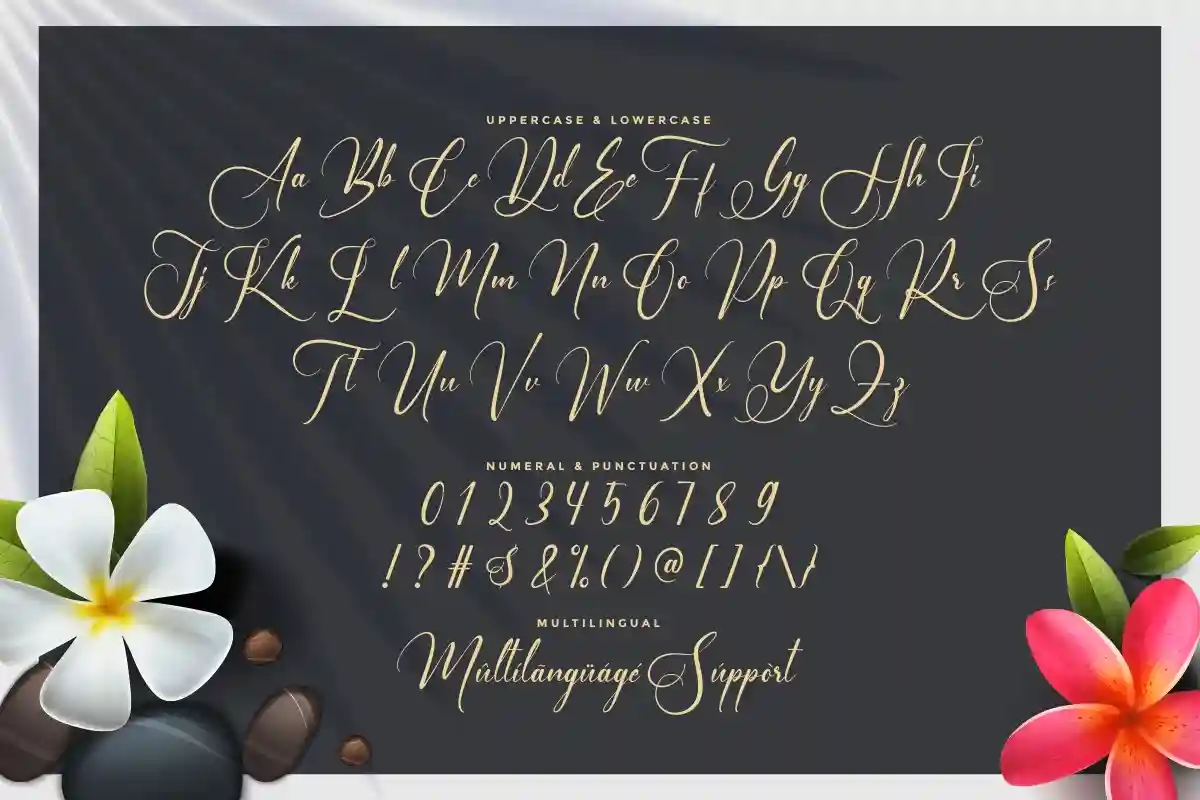 UPPERCASE & LOWERCASE
Aa Bb Cc Dd Ee Ff Gg Hh Ii
Jj Kk Ll Mm Nn Oo Pp Qq Rr Ss
Tt Uu Vv Ww Xx Yy Zz
NUMERAL & PUNCTUATION
0 1 2 3 4 5 6 7 8 9
! ? # $ & % ( ) @ [ ] { \ }
MULTILINGUAL
Mûltílãngüágé Súppòrt